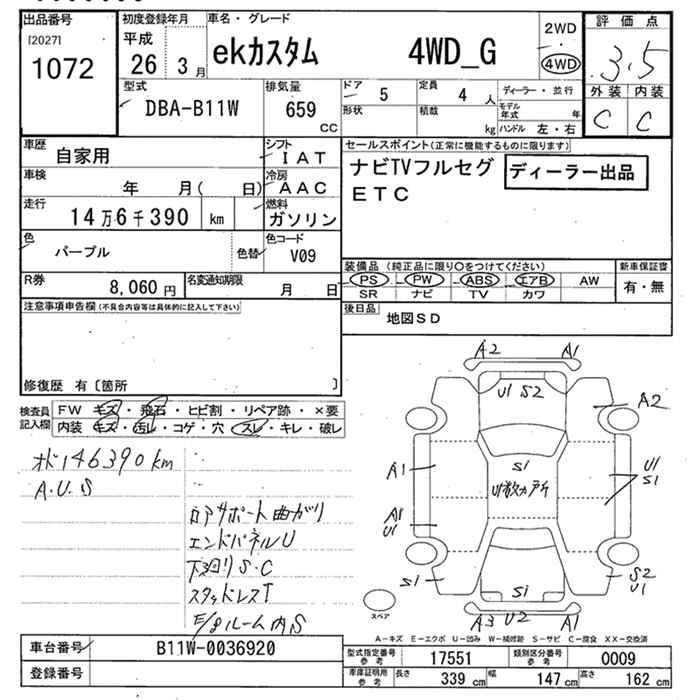 出品番号 初度登録年月 車名・グレード 2WD 評価点
[2027] 平成 ・
1072 26 3月 ekカスタム 4WD_G 4WD 3.5
型式 排気量 ドア 5 定員 4人 ディーラー・並行 外装 内装
DBA-B11W 659 CC 形状 積載 kg モデル年式 年 C C
ハンドル 左・右
車歴 自家用 シフト IAT セールスポイント(正常に機能するものに限ります)
車検 年 月( 日) 冷房 AAC ナビTVフルセグ ディーラー出品
走行 14万6千390 km 燃料 ガソリン ETC
色 パープル 色替 色コード V09
R券 8,060円 名変通知期限 月 日 装備品(純正品に限り〇をつけてください) 新車保証書
PS PW ABS エアB AW 有・無
SR ナビ TV カワ
注意事項申告欄(不具合内容等は具体的に記入して下さい) 後日品 地図SD
修復歴 有〔箇所 〕
検査員記入欄 FW キズ・飛石・ヒビ割・リペア跡・×要
内装 キズ・汚レ・コゲ・穴・スレ・キレ・破レ
オド146390km
A.U.S
ロアサポート曲ガリ
エンドパネルU
下廻りS・C
スタッドレスT
E/gルーム内S
A2 A1
U1 S2
A2
S1
A1 U1 S1
U1散カ所
A1
U1
S1 S1 S2
U1
A3 U2 A1
スペア
A-キズ E-エクボ U-凹み W-補修跡 S-サビ C-腐食 XX-交換済
車台番号 B11W-0036920 型式指定番号 参考 17551 類別区分番号 参考 0009
登録番号 車庫証明用 参考 長さ 339 cm 幅 147 cm 高さ 162 cm